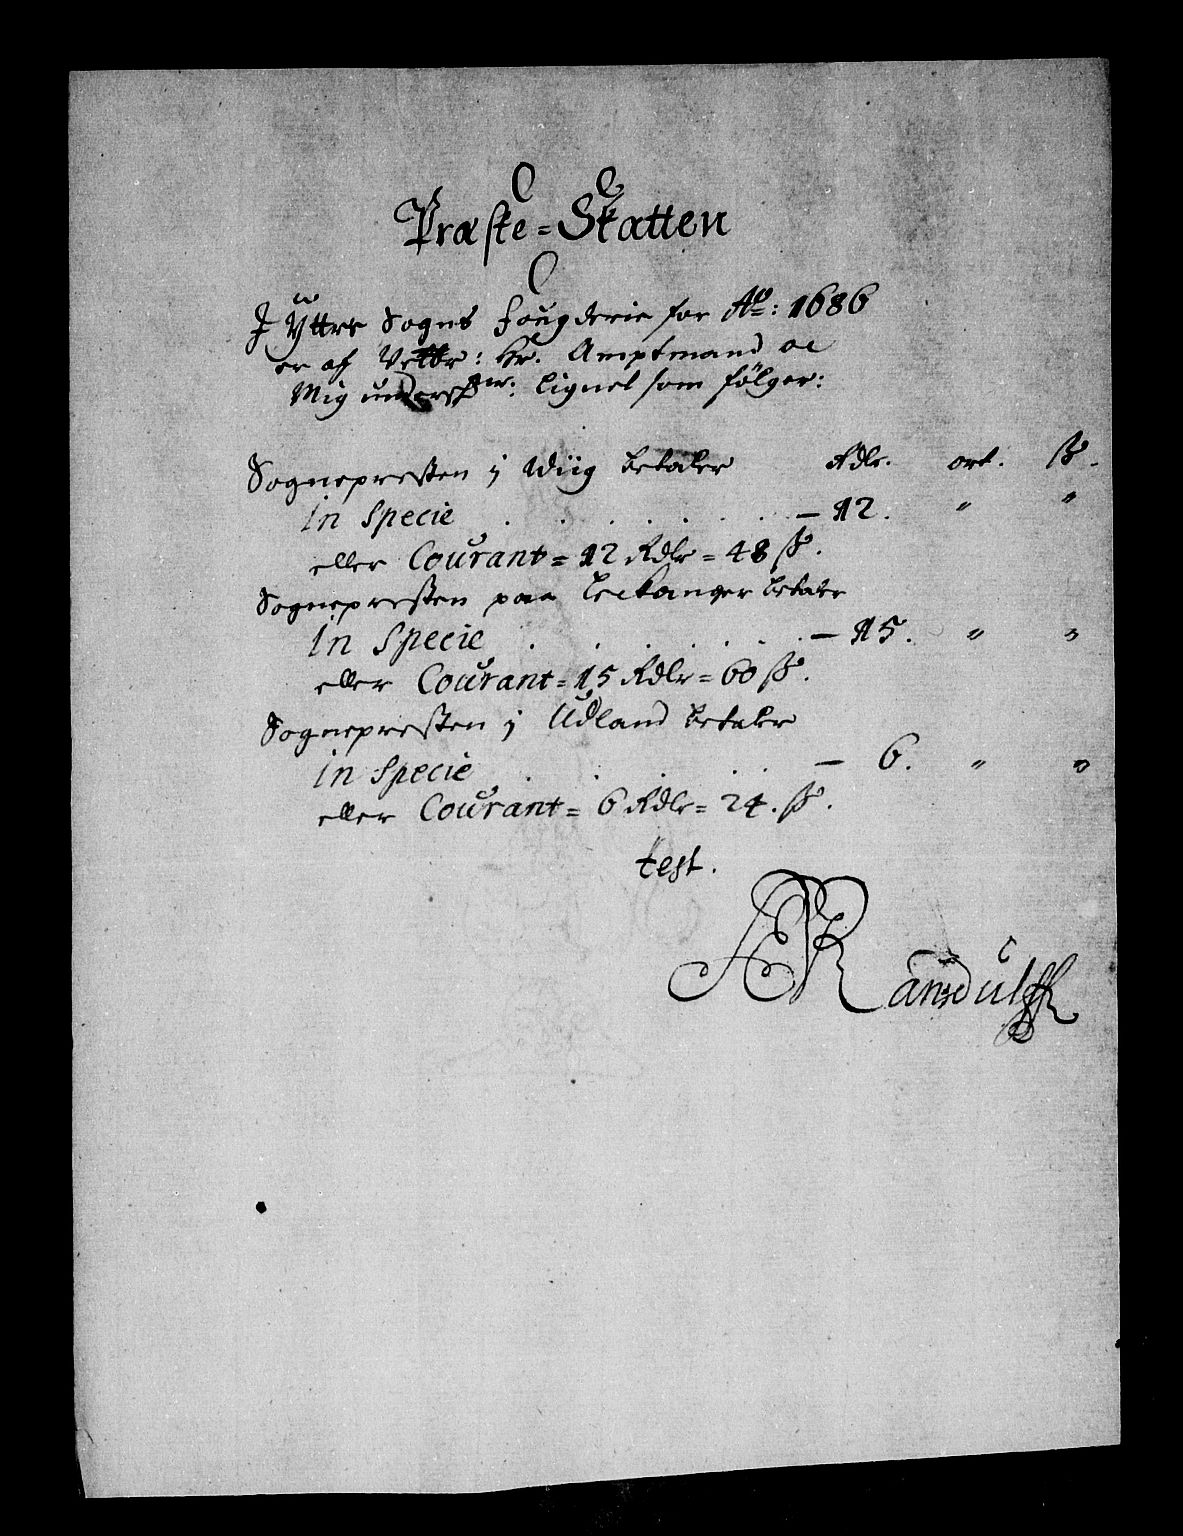 Præste-Skatten
I Yttre Sogns fougderie for Aº: 1686
er af Velbr: Hr. Amptmand oc
Mig underskr: lignet som følger:
Sognepresten j Wiig betaler Rdlr. ort. ß.
In Specie . . . . . . . — 12. " "
eller Courant = 12 Rdlr = 48 ß.
Sognepresten paa Leikanger betaler
In Specie . . . . . . . — 15. " "
eller Courant = 15 Rdlr = 60 ß.
Sognepresten j Udland betaler
In Specie . . . . . — 6. " "
eller Courant = 6 Rdlr = 24. ß.
test.